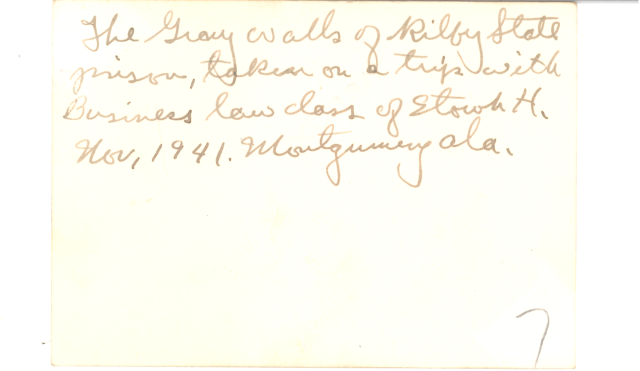 The Gray walls of Kilby State
prison, taken on a trip with
Business law class of Stowh H.
Nov, 1941. Montgumery ala.
7